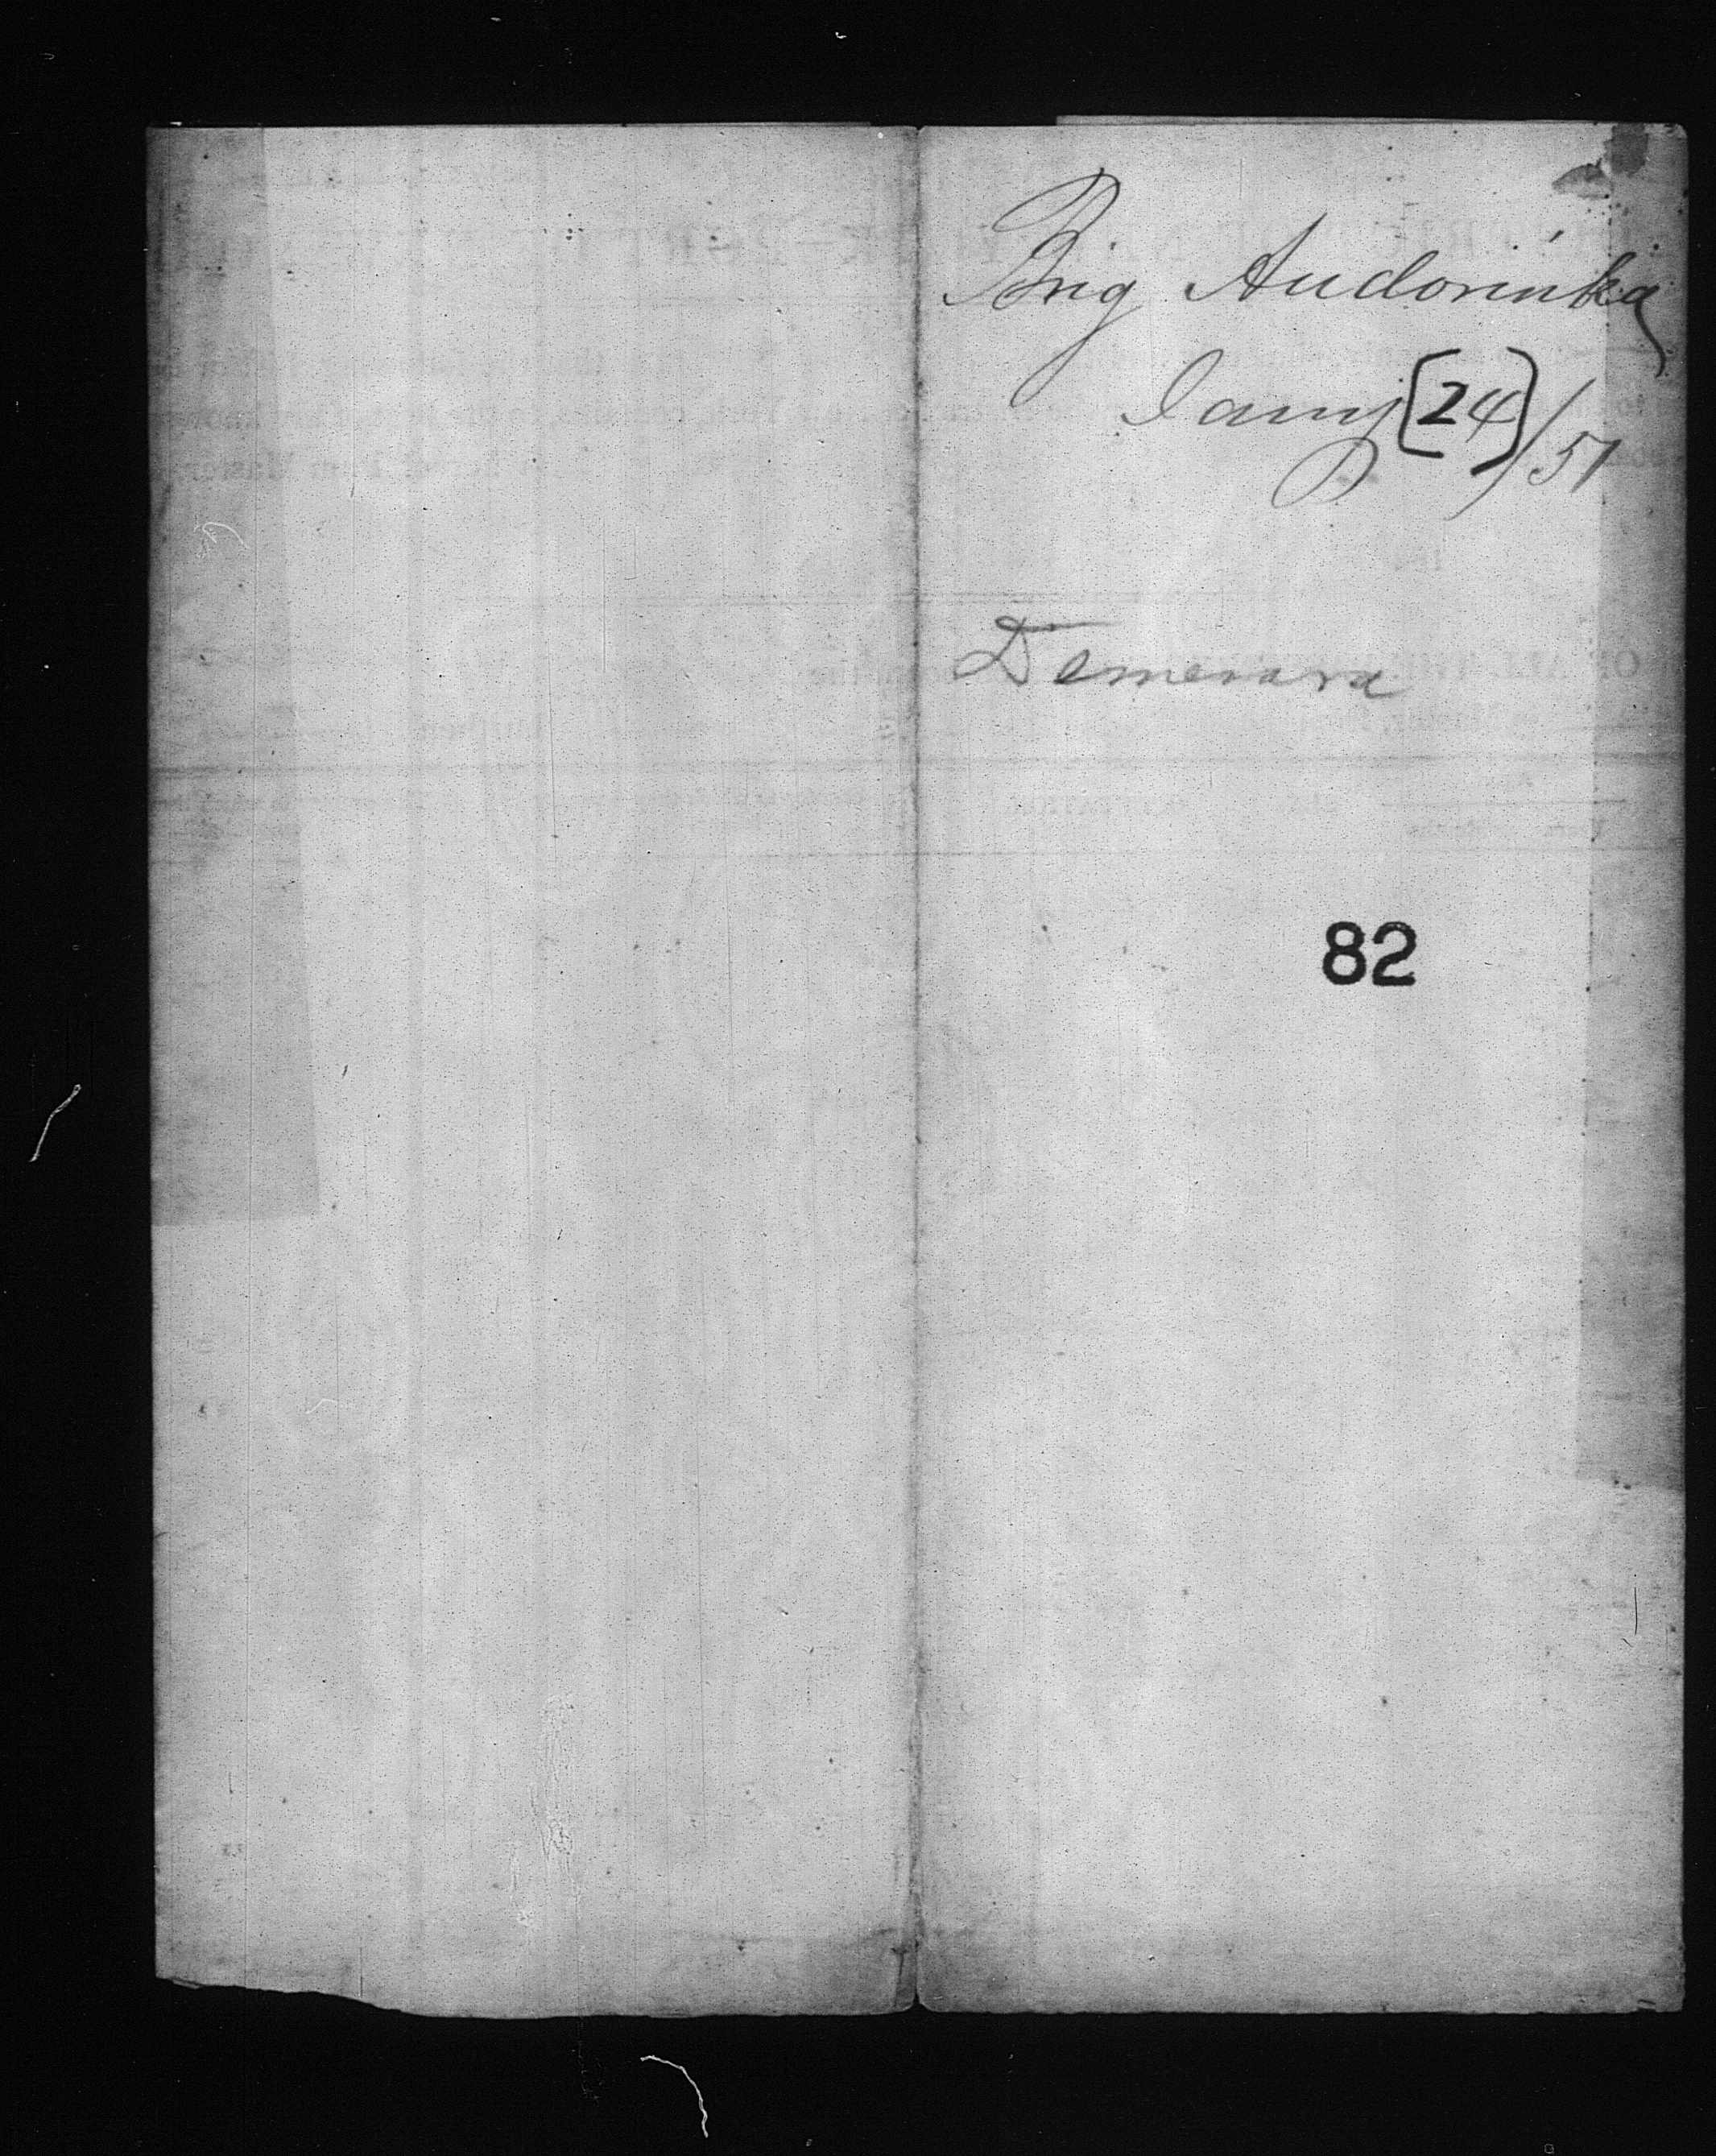 Brig Audorinha
Jany [24]/51
Demerara
82